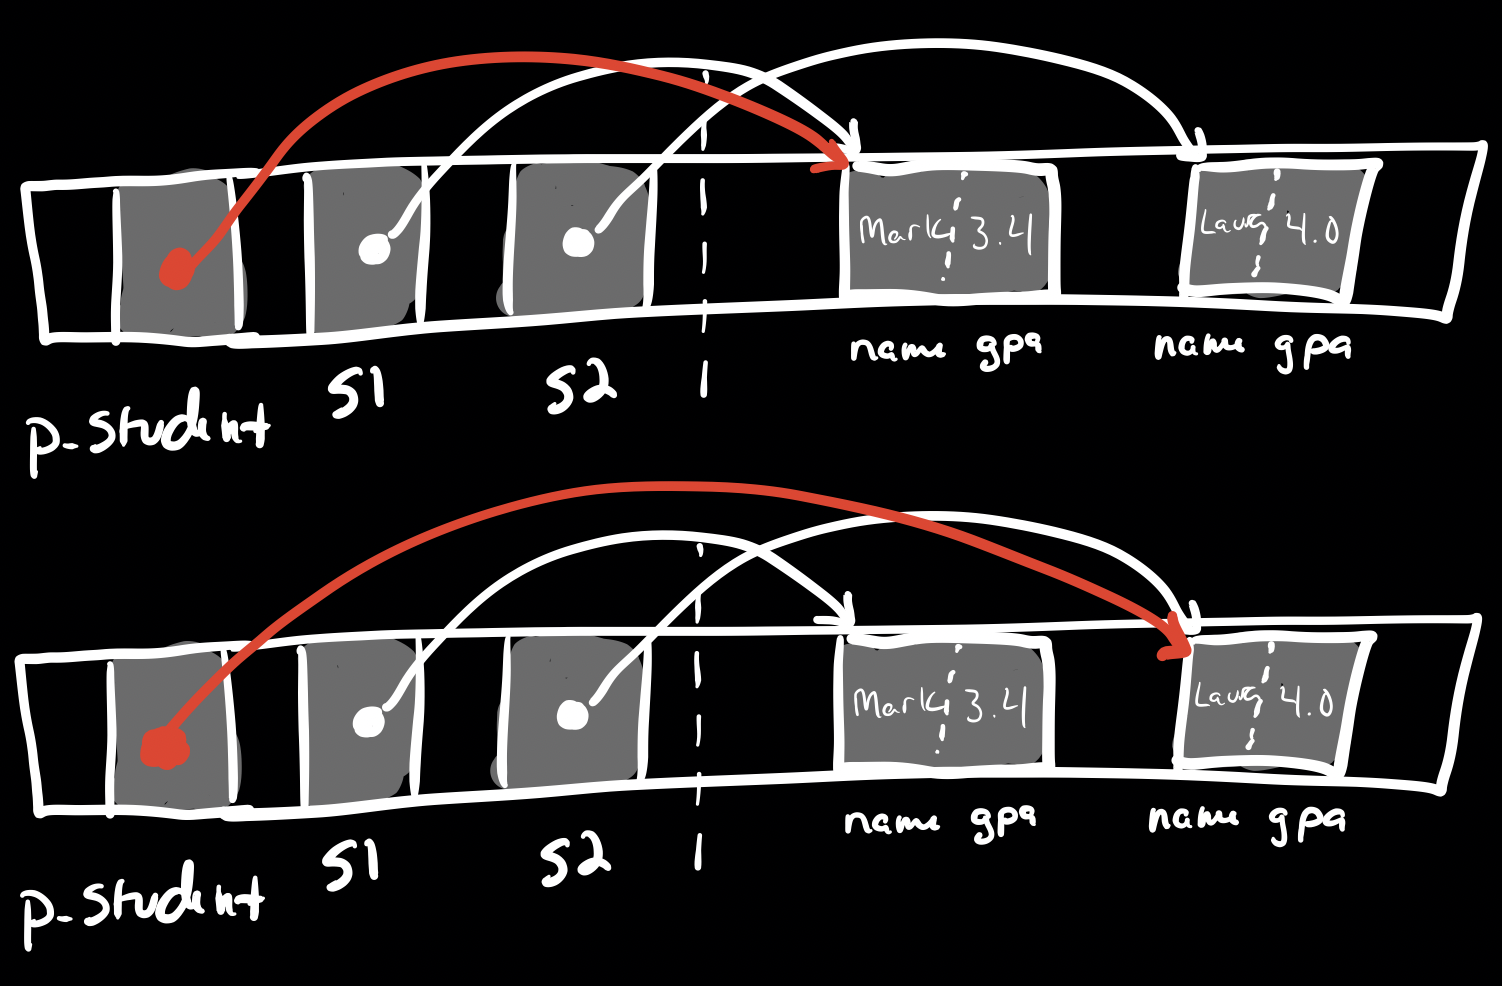 Mark 3.4
4.0
name gpa
name gpa
p-student
S1
S2
Mark 3.4
4.0
name gpa
name gpa
p-student
S1
S2